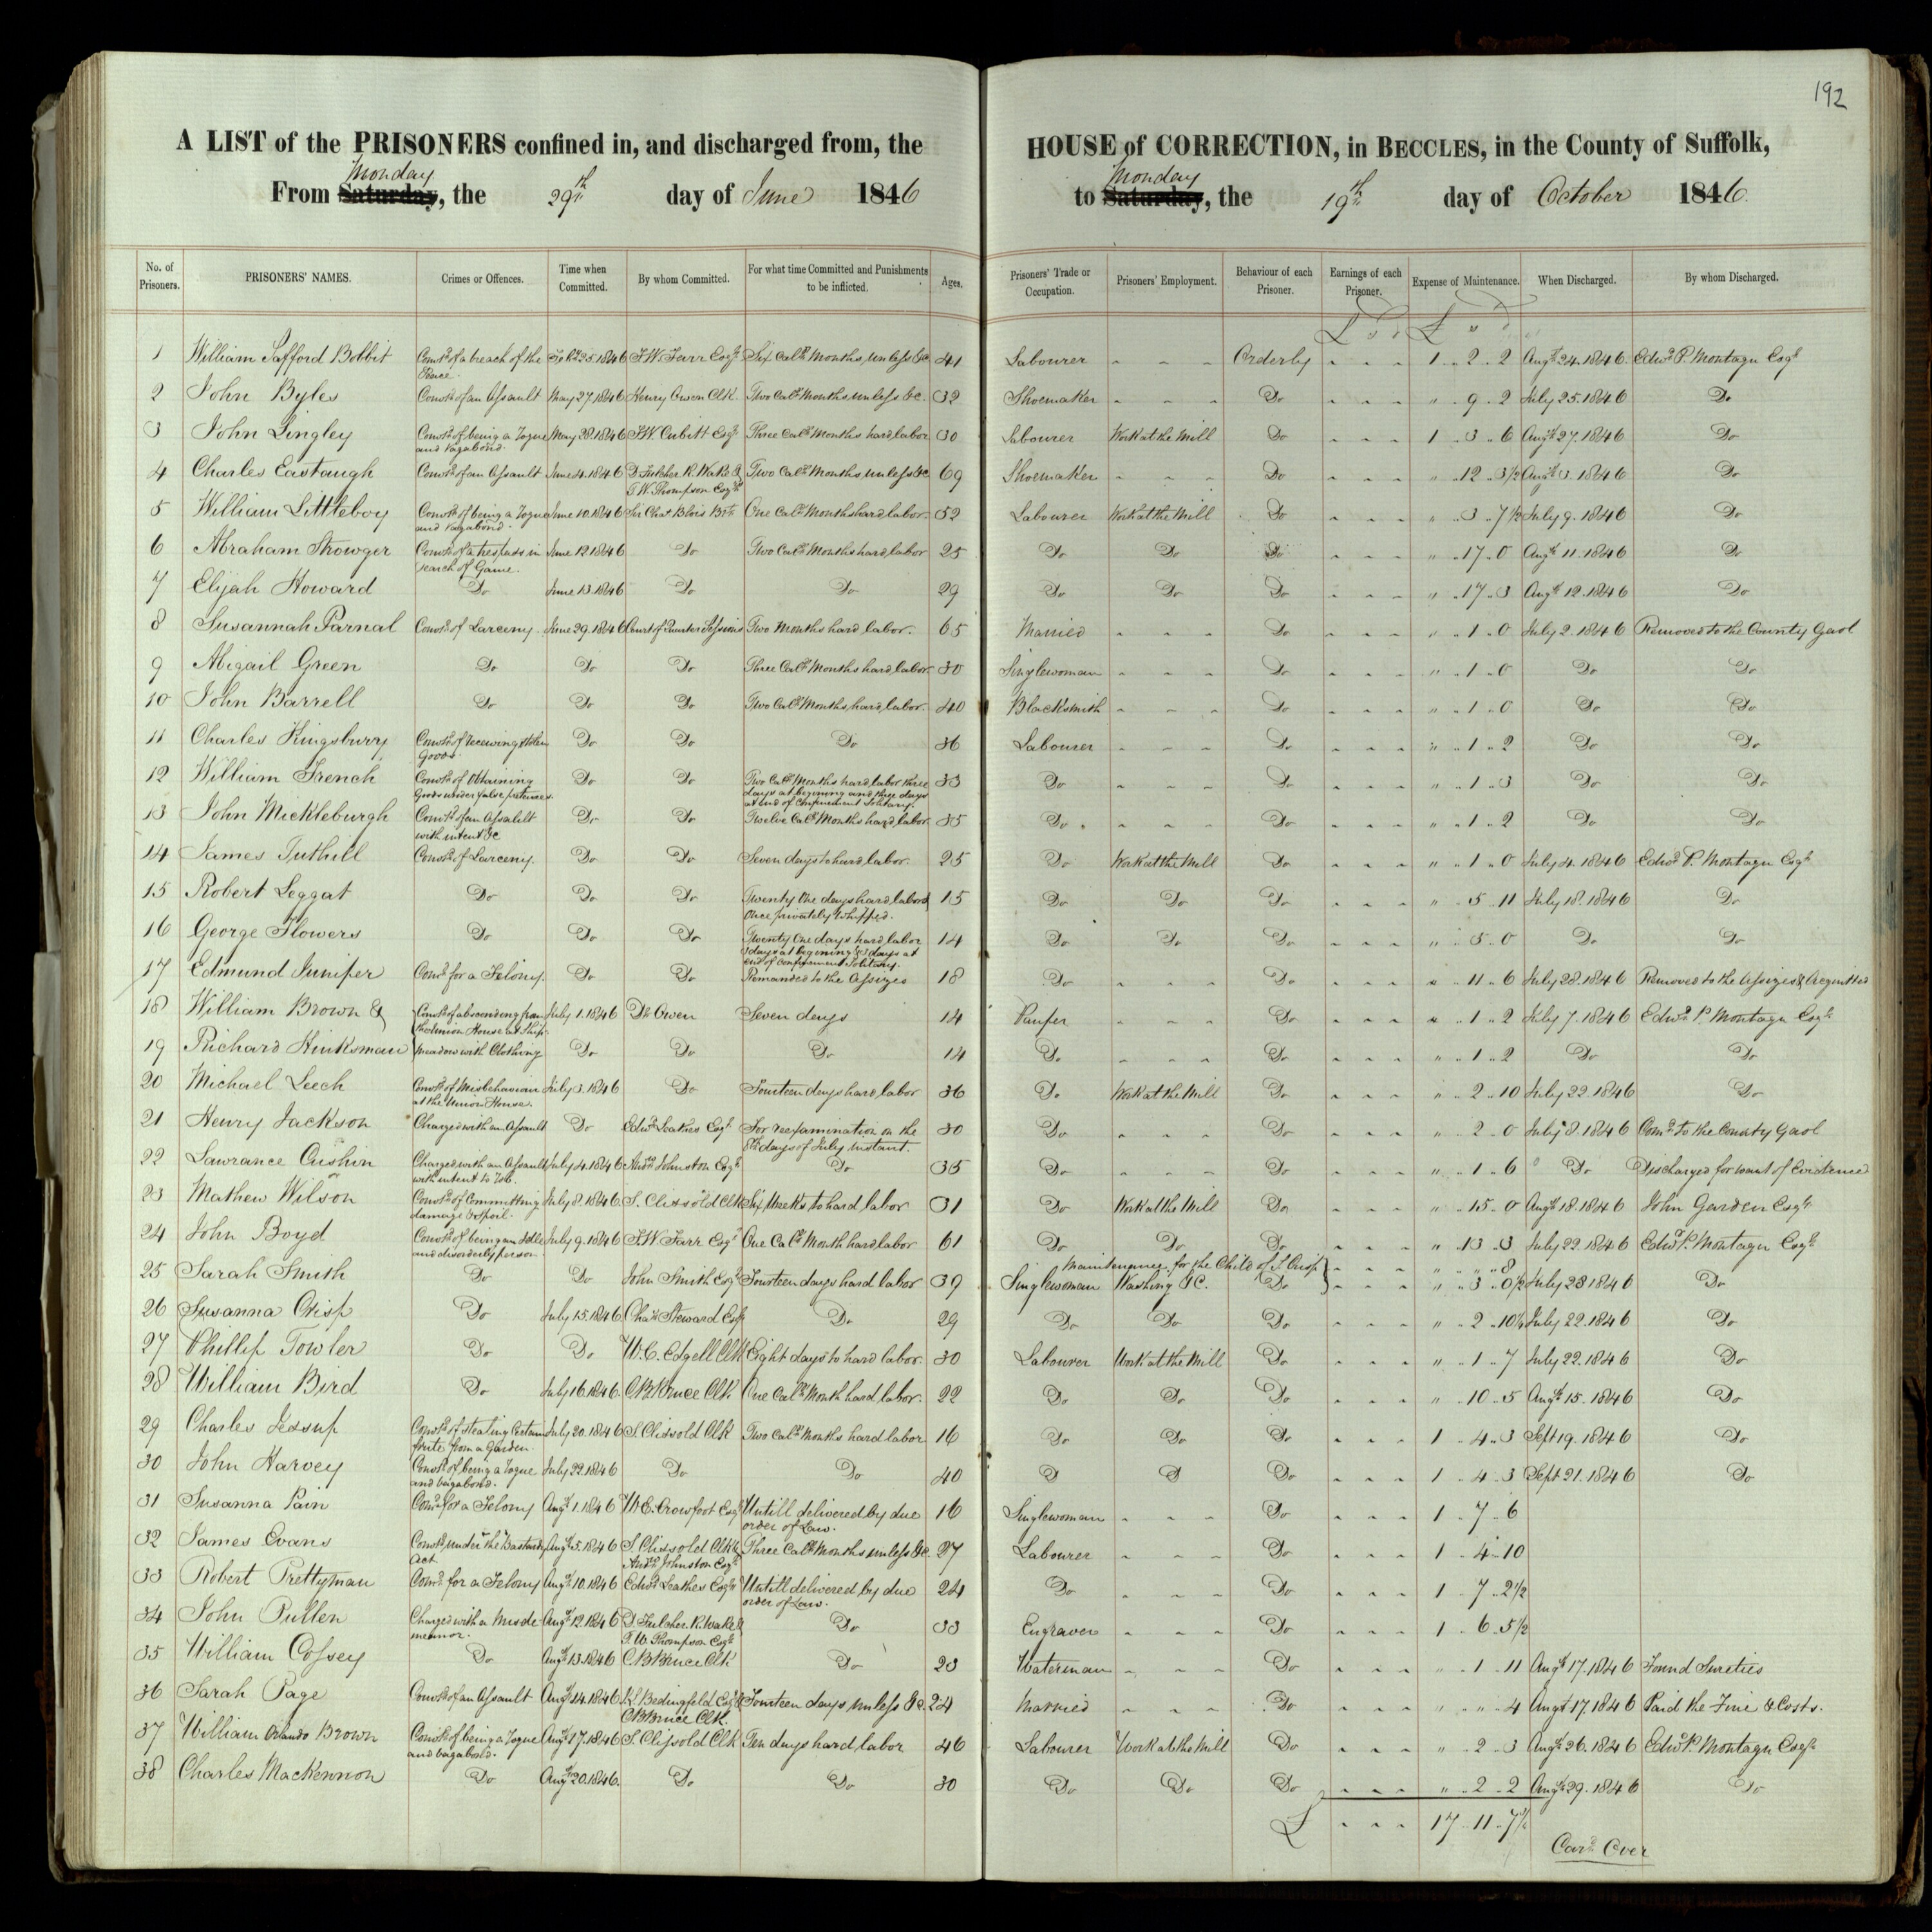 192
A LIST of the PRISONERS confined in, and discharged from, the HOUSE of CORRECTION, in BECCLES, in the County of Suffolk,
Monday Monday
From Saturday, the 29th day of June 1846 to Saturday, the 19th day of October 1846.
No. of Prisoners. PRISONERS' NAMES. Crimes or Offences. Time when Committed. By whom Committed. For what time Committed and Punishments to be inflicted. Ages. Prisoners' Trade or Occupation. Prisoners' Employment. Behaviour of each Prisoner. Earnings of each Prisoner. Expense of Maintenance. When Discharged. By whom Discharged.
£ s d £ s d
1 William Safford Bobbit Convd of a breach of the Peace. 25 1846 F.W. Farr Esqr Six Calr Months, unless &c 41 Labourer Orderly 1 .. 2 .. 2 Augt 24. 1846. Edwd P. Montagu Esqr
2 John Byles Convd of an Assault May 27 1846 Henry Owen Clk. Two Calr Months unless &c. 32 Shoemaker Do " .. 9 .. 2 July 25. 1846 Do
3 John Lingley Convd of being a rogue and vagabond. May 28. 1846 F.W. Cubitt Esqr Three Calr Months hard labor 30 Labourer Work at the Mill Do 1 .. 3 .. 6 Augt 27. 1846 Do
4 Charles Eastaugh Convd of an Assault June 4. 1846 D. Fulcher R. Wake & T.W. Thompson Esqrs Two Calr Months unless &c 69 Shoemaker Do " .. 12 .. 3½ Augt 3. 1846 Do
5 William Littleboy Convd of being a rogue and vagabond. June 10. 1846 Sir Chas Blois Brt One Calr Months hard labor 52 Labourer Work at the Mill Do " .. 3 .. 7½ July 9. 1846 Do
6 Abraham Strowger Convd of a trespass in search of Game. June 12 1846 Do Two Calr Months hard labor 25 Do Do Do " .. 17 .. 0 Augt 11. 1846 Do
7 Elijah Howard Do June 13. 1846 Do Do 29 Do Do Do " .. 17 .. 3 Augt 12. 1846 Do
8 Susannah Parnal Convd of Larceny. June 29. 1846 Court of Quarter Sessions Two Months hard labor. 65 Married Do " .. 1 .. 0 July 2. 1846 Removed to the County Gaol
9 Abigail Green Do Do Do Three Calr Months hard labor. 30 Singlewoman Do " .. 1 .. 0 Do Do
10 John Barrell Do Do Do Two Calr Months hard labor. 40 Blacksmith Do " .. 1 .. 0 Do Do
11 Charles Kingsbury Convd of receiving stolen goods. Do Do Do 36 Labourer Do " .. 1 .. 2 Do Do
12 William French Convd of Obtaining Goods under false pretences. Do Do Two Calr Months hard labor three days at begining and three days at end of Confinement Solitary. 33 Do Do " .. 1 .. 3 Do Do
13 John Mickleburgh Convd of an Assault with intent &c Do Do Twelve Calr Months hard labor 35 Do Do " .. 1 .. 2 Do Do
14 James Tuthill Convd of Larceny. Do Do Seven days to hard labor. 25 Do Work at the Mill Do " .. 1 .. 0 July 4. 1846 Edwd P. Montagu Esqr
15 Robert Leggat Do Do Do Twenty One days hard labor & Once privately Whipped. 15 Do Do Do " .. 5 .. 11 July 18. 1846 Do
16 George Flowers Do Do Do Twenty One days hard labor 3 days at begining & 3 days at end of confinement Solitary. 14 Do Do Do " .. 5 .. 0 Do Do
17 Edmund Juniper Comd for a Felony. Do Do Remanded to the Assizes 18 Do Do " .. 11 .. 6 July 28. 1846 Removed to the Assizes & Acquitted
18 William Brown & Convd of absconding from the Union House at Ship- July 1. 1846 Dr Owen Seven days 14 Pauper Do " .. 1 .. 2 July 7. 1846 Edwd P. Montagu Esqr
19 Richard Hinksman meadow with Clothing Do Do Do 14 Do Do " .. 1 .. 2 Do Do
20 Michael Leech Convd of Misbehaviour at the Union House. July 3. 1846 Do Fourteen days hard labor 36 Do Work at the Mill Do " .. 2 .. 10 July 22. 1846 Do
21 Henry Jackson Charged with an Assault Do Edwd Leathes Esqr For reexamination on the 8th days of July instant. 30 Do Do " .. 2 .. 0 July 8. 1846 Comd to the County Gaol
22 Lawrance Cushin Charged with an Assault with intent to rob. July 4. 1846 Andw Johnston Esqr Do 35 Do Do " .. 1 .. 6 Do Discharged for want of Evidence
23 Mathew Wilson Convd of Committing damage & Spoil. July 8. 1846. S. Clissold Clk Six Weeks to hard labor 31 Do Work at the Mill Do " .. 15 .. 0 Augt 18. 1846 John Garden Esqr
24 John Boyd Convd of being an Idle and disorderly person. July 9. 1846 F.W. Farr Esqr One Calr Month hard labor 61 Do Do Do " .. 13 .. 3 July 22 1846 Edwd P. Montagu Esqr
Maintenance for the Child of S. Crisp } " .. " .. 8
25 Sarah Smith Do Do John Smith Esqr Fourteen days hard labor 39 Singlewoman Washing &c. Do " .. 3 .. 0½ July 23 1846 Do
26 Susanna Crisp Do July 15. 1846. Chas Steward Esqr Do 29 Do Do Do " .. 2 .. 10½ July 22. 1846 Do
27 Phillip Towler Do Do W.C. Edgell Clk Eight days to hard labor. 30 Labourer Work at the Mill Do " .. 1 .. 7 July 22. 1846 Do
28 William Bird Do July 16. 1846. C.B. Bruce Clk One Calr Month hard labor. 22 Do Do Do " .. 10 .. 5 Augt 15. 1846 Do
29 Charles Jessup Convd of stealing Certain fruite from a Garden. July 20. 1846 S. Clissold Clk Two Calr Months hard labor 16 Do Do Do 1 .. 4 .. 3 Sept 19. 1846 Do
30 John Harvey Convd of being a rogue and vagabond. July 22. 1846 Do Do 40 D D Do 1 .. 4 .. 3 Sept 21. 1846 Do
31 Susanna Pain Comd for a Felony Augt 1. 1846 W.E. Crowfoot Esqr Untill delivered by due order of Law. 16 Singlewoman Do 1 .. 7 .. 6
32 James Evans Convd under the Bastardy Act Augt 5. 1846 S. Clissold Clk & Andw Johnston Esqr Three Calr Months unless &c. 27 Labourer Do 1 .. 4 .. 10
33 Robert Prettyman Comd for a Felony Augt 10. 1846 Edwd Leathes Esqr Untill delivered by due order of Law. 24 Do Do 1 .. 7 .. 2½
34 John Pullen Charged with a Misdemeanor. Augt 12. 1846 D. Fulcher. R. Wake & T.W. Thompson Esqrs Do 33 Engraver Do 1 .. 6 .. 5½
35 William Cossey Do Augt 13. 1846 C.B. Bruce Clk Do 23 Waterman Do " .. 1 .. 11 Augt 17. 1846 Found Sureties
36 Sarah Page Convd of an Assault Augt 14. 1846. Bedingfeld Esqr & C.B. Bruce Clk. Fourteen days unless &c. 24 Married Do " .. " .. 4 Augt 17. 1846 Paid the Fine & Costs.
37 William Orlando Brown Convd of being a rogue and vagabond. Augt 17. 1846 S. Clissold Clk Ten days hard labor 46 Labourer Work at the Mill Do " .. 2 .. 3 Augt 26. 1846 Edwd P. Montagu Esqr
38 Charles MacKennon Do Augt 20. 1846. Do Do 30 Do Do Do " .. 2 .. 2 Augt 29. 1846 Do
£ 17 .. 11 .. 7½
Card Over